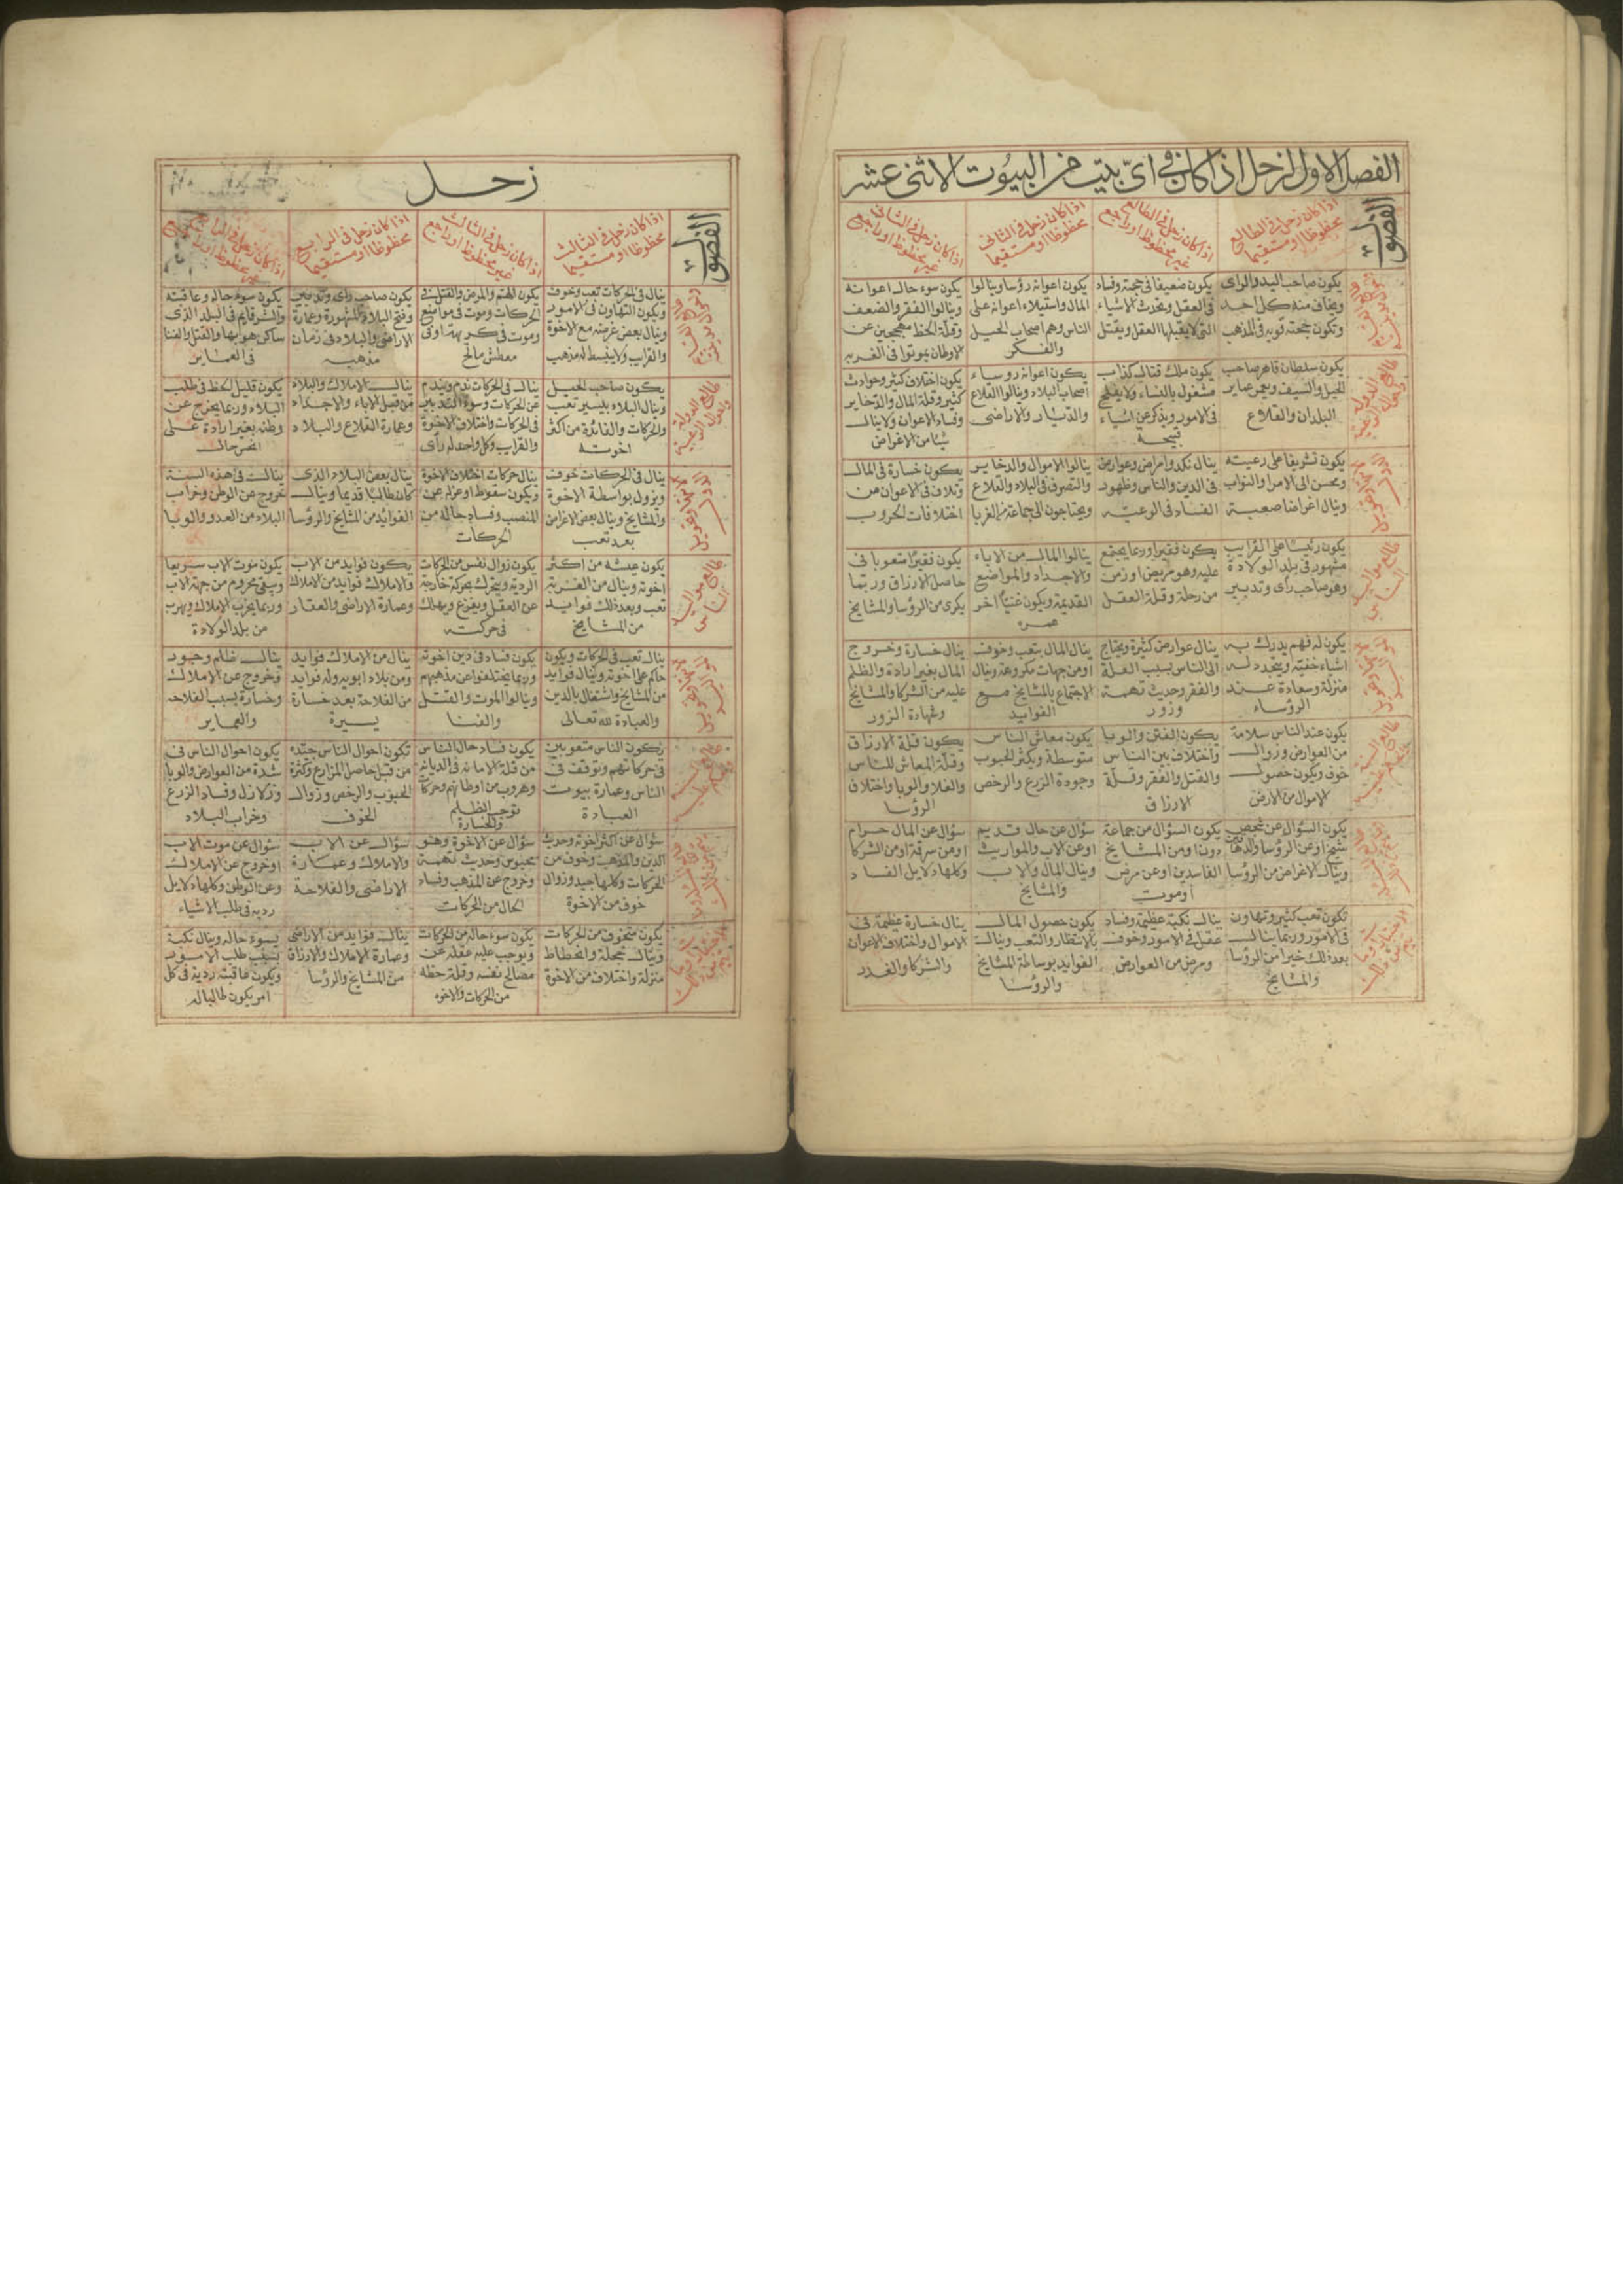 الفصل الاول لزحل اذا كان في اى بيت من البيوت الاثنى عشر
الفصول
اذا كان زحل فى الطالع
محظوظا او مستقيما
اذا كان زحل فى الطالع
غير محظوظ او راجع
اذا كان زحل فى الثانى
محظوظا او مستقيما
اذا كان زحل فى الثانى
غير محظوظ او راجع
يكون صاحب اليد والراى
ويخاف منه كل احد
وتكون حجته قويه فى المذهب
يكون ضعيفا فى حجته وفساد
فى العقل ويحدث الاشياء
التى لا يقبلها العقل ويقتل
يكون اعوانه رؤسا وينالوا
المال واستيلاء اعوانه على
الناس وهم اصحاب الحيل
والفكر
يكون سوء حال اعوانه
وينالوا الفقر والضعف
وقلة الحظ مجحجين عن
الاوطان يموتوا فى الغربه
طالع الدولة
يكون سلطان قاهر صاحب
الخيل والسيف ويعمر عماير
البلدان والقلاع
يكون ملك قتال كذاب
مشغول بالنساء ولا يفلح
فى الامور ويذكر عن اشياء
قبيحه
يكون اعوانه روساء
اصحاب البلاد وينالوا القلاع
والديار والاراضى
يكون اختلاف كثير وحوادث
كثير وقلة المال والذخاير
وفساد الاعوان ولا ينال
شيا من الاغراض
يكون شريفا على رعيته
ويحسن الى الامرا والنواب
وينال اغراضا صعبة
ينال نكد وامراض وعوارض
فى الدين والناس وظهور
الفساد فى الرعية
ينالوا الاموال والذخاير
والتصرف فى البلاد والقلاع
ويحتاجون الى جماعة من الغربا
يكون خسارة فى المال
وتلاف فى الاعوان من
اختلافات الحروب
طالع مواليد
الناس
يكون رئيسا على القرايب
مشهور فى بلد الولادة
وهو صاحب رأى وتدبير
يكون فقير او ربما يجتمع
عليه وهو مريض او زمن
من رحلة وقلة العقل
ينالوا المال من الاباء
والاجداد والمواضع
القديمة ويكون غنيا آخر
عمره
يكون فقيرا متعوبا فى
حاصل الارزاق وربما
يكرى من الرؤسا والمشايخ
يكون له فهم يدرك به
اشياء خفيه ويتجدد له
منزلة وسعادة عند
الرؤساء
ينال عوارض كثيرة ويحتاج
الى الناس بسبب العلة
والفقر وحديث تهمة
وزور
ينال المال بتعب وخوف
او من جهات مكروهة وينال
الاجتماع بالمشايخ مع
الفوايد
ينال خسارة وخروج
المال بغير ارادة والظلم
عليه من الشركا والمشايخ
وشهادة الزور
يكون عند الناس سلامة
من العوارض وزوال
خوف ويكون حصول
الاموال من الارض
يكون الفتن والوبا
واختلاف بين الناس
والقتل والفقر وقلة
الارزاق
يكون معاش الناس
متوسطة ويكثر الحبوب
وجودة الزرع والرخص
يكون قلة الارزاق
وقلة المعاش للناس
والغلا والوبا واختلاف
الرؤسا
يكون السؤال عن شخص
شيخ او عن الرؤسا والدهاقين
وينال الاغراض من الرؤسا
يكون السؤال من جماعة
دون او من المشايخ
الفاسدين او عن مرض
او موت
سؤال عن حال قديم
او عن الاب والمواريث
وينال المال والاب
والمشايخ
سؤال عن المال حرام
او من سرقة او من الشركا
وكلها دلايل الفساد
تكون تعب كثير وتهاون
فى الامور وربما ينال
بعد ذلك خير من الرؤسا
والمشايخ
ينال نكبة عظيمة وفساد
عقل فى الامور وخوف
ومرض من العوارض
يكون حصول المال
بالانتظار والتعب وينال
الفوايد بوساطة المشايخ
والرؤسا
ينال خسارة عظيمة فى
الاموال واختلاف الاعوان
والشركا والغدر
زحل
الفصول
اذا كان زحل فى الثالث
محظوظا او مستقيما
اذا كان زحل فى الثالث
غير محظوظ او راجع
اذا كان زحل فى الرابع
محظوظا او مستقيما
اذا كان زحل فى الرابع
غير محظوظ او راجع
ينال فى الحركات تعب وخوف
ويكون التهاون فى الامور
وينال بعض غرضه مع الاخوة
والقرايب ولا ينبسط له مذهب
يكون الهتم والمرض والقتل فى
الحركات وموت فى مواضع
وموت فى كرب بهذا وفى
معطش مالح
يكون صاحب راى وتدبير
وفتح البلاد المشهورة وعمارة
الاراضى والبلاد فى زمان
مذهبه
يكون سوء حاله وعاقبته
والشر قايم فى البلد الذى
ساكن هو بها والقتل والفنا
فى العماير
طالع الدولة
يكون صاحب الحيل
وينال البلاد بيسير تعب
والحركات والفائدة من اكثر
اخوته
ينال فى الحركات ندم ويندم
عن الحركات وسوء التدبير
فى الحركات واختلاف الاخوة
والقرايب وكل واحد له رأى
ينال الاملاك والبلاد
من قبل الاباء والاجداد
وعمارة القلاع والبلاد
يكون قليل الحظ فى طلب
البلاد وربما يخرج عن
وطنه بغير ارادة على
انحس حال
ينال فى الحركات خوف
ويزول بواسطة الاخوة
والمشايخ وينال بعض الاغراض
بعد تعب
ينال حركات اختلاف الاخوة
ويكون سقوط او عزله عن
المنصب وفساد حاله من
الحركات
ينال بعض البلاد الذى
كان طالبا قديما وينال
الفوايد من المشايخ والرؤسا
ينال فى هذه السنة
خروج عن الوطن وخراب
البلاد من العدو والوبا
طالع مواليد
الناس
يكون عيشه من اكثر
اخوته وينال من الغربة
تعب وبعد ذلك فوايد
من المشايخ
يكون زوال نفس من الحركات
الردية ويتحرك بحركة خارجة
عن العقل ويفزع ويهلك
فى حركته
يكون فوايد من الاب
والاملاك فوايد من الاملاك
وعمارة الاراضى والعقار
يكون موت الاب سريعا
ويبقى محروم من جهة الاب
وربما يخرب الاملاك ويهرب
من بلد الولادة
ينال تعب فى الحركات ويكون
حاكم على اخوته وينال فوايد
من المشايخ واشتغال بالدين
والعبادة لله تعالى
يكون فساد فى دين اخوته
وربما يختلفوا عن مذهبهم
وينالوا الموت والقتل
والفنا
ينال من الاملاك فوايد
ومن بلاد ابويه وله فوايد
من الفلاحة بعد خسارة
يسيرة
ينال ظلم وجور
وخروج عن الاملاك
وخسارة بسبب الفلاحه
والعماير
يكون الناس متعوبين
فى حركاتهم وتوقف فى
الناس وعمارة بيوت
العبادة
يكون فساد حال الناس
من قلة الامانه فى الديانه
وهروب من اوطانهم وحركات
توجب الظلم
والخسارة
تكون احوال الناس جيده
من قبل حاصل المزارع وكثرة
الحبوب والرخص وزوال
الخوف
يكون احوال الناس فى
شدة من العوارض والوبا
وزلازل وفساد الزرع
وخراب البلاد
سؤال عن اكثر اخوته وحديث
الدين والمذهب وخوف من
الحركات وكلها جيد وزوال
خوف من الاخوة
سؤال عن الاخوة وهو
محبوس وحديث تهمة
وخروج عن المذهب وفساد
الحال من الحركات
سؤال عن الاب
والاملاك وعمارة
الاراضى والفلاحة
سؤال عن موت الاب
او خروج عن الاملاك
وعن الوطن وكلها دلايل
رديه فى طلب الاشياء
يكون متخوف من الحركات
وينال عجلة وانحطاط
منزلة واختلاف من الاخوة
يكون سوء حاله من الحركات
ويوجب عليه غفله عن
مصالح نفسه وقلة حظه
من الحركات والاخوه
ينال فوايد من الاراضى
وعمارة الاملاك والارزاق
من المشايخ والرؤسا
يسوء حاله وينال نكبة
بسبب طلب الامور
ويكون عاقبته ردية فى كل
امر يكون طالبا له